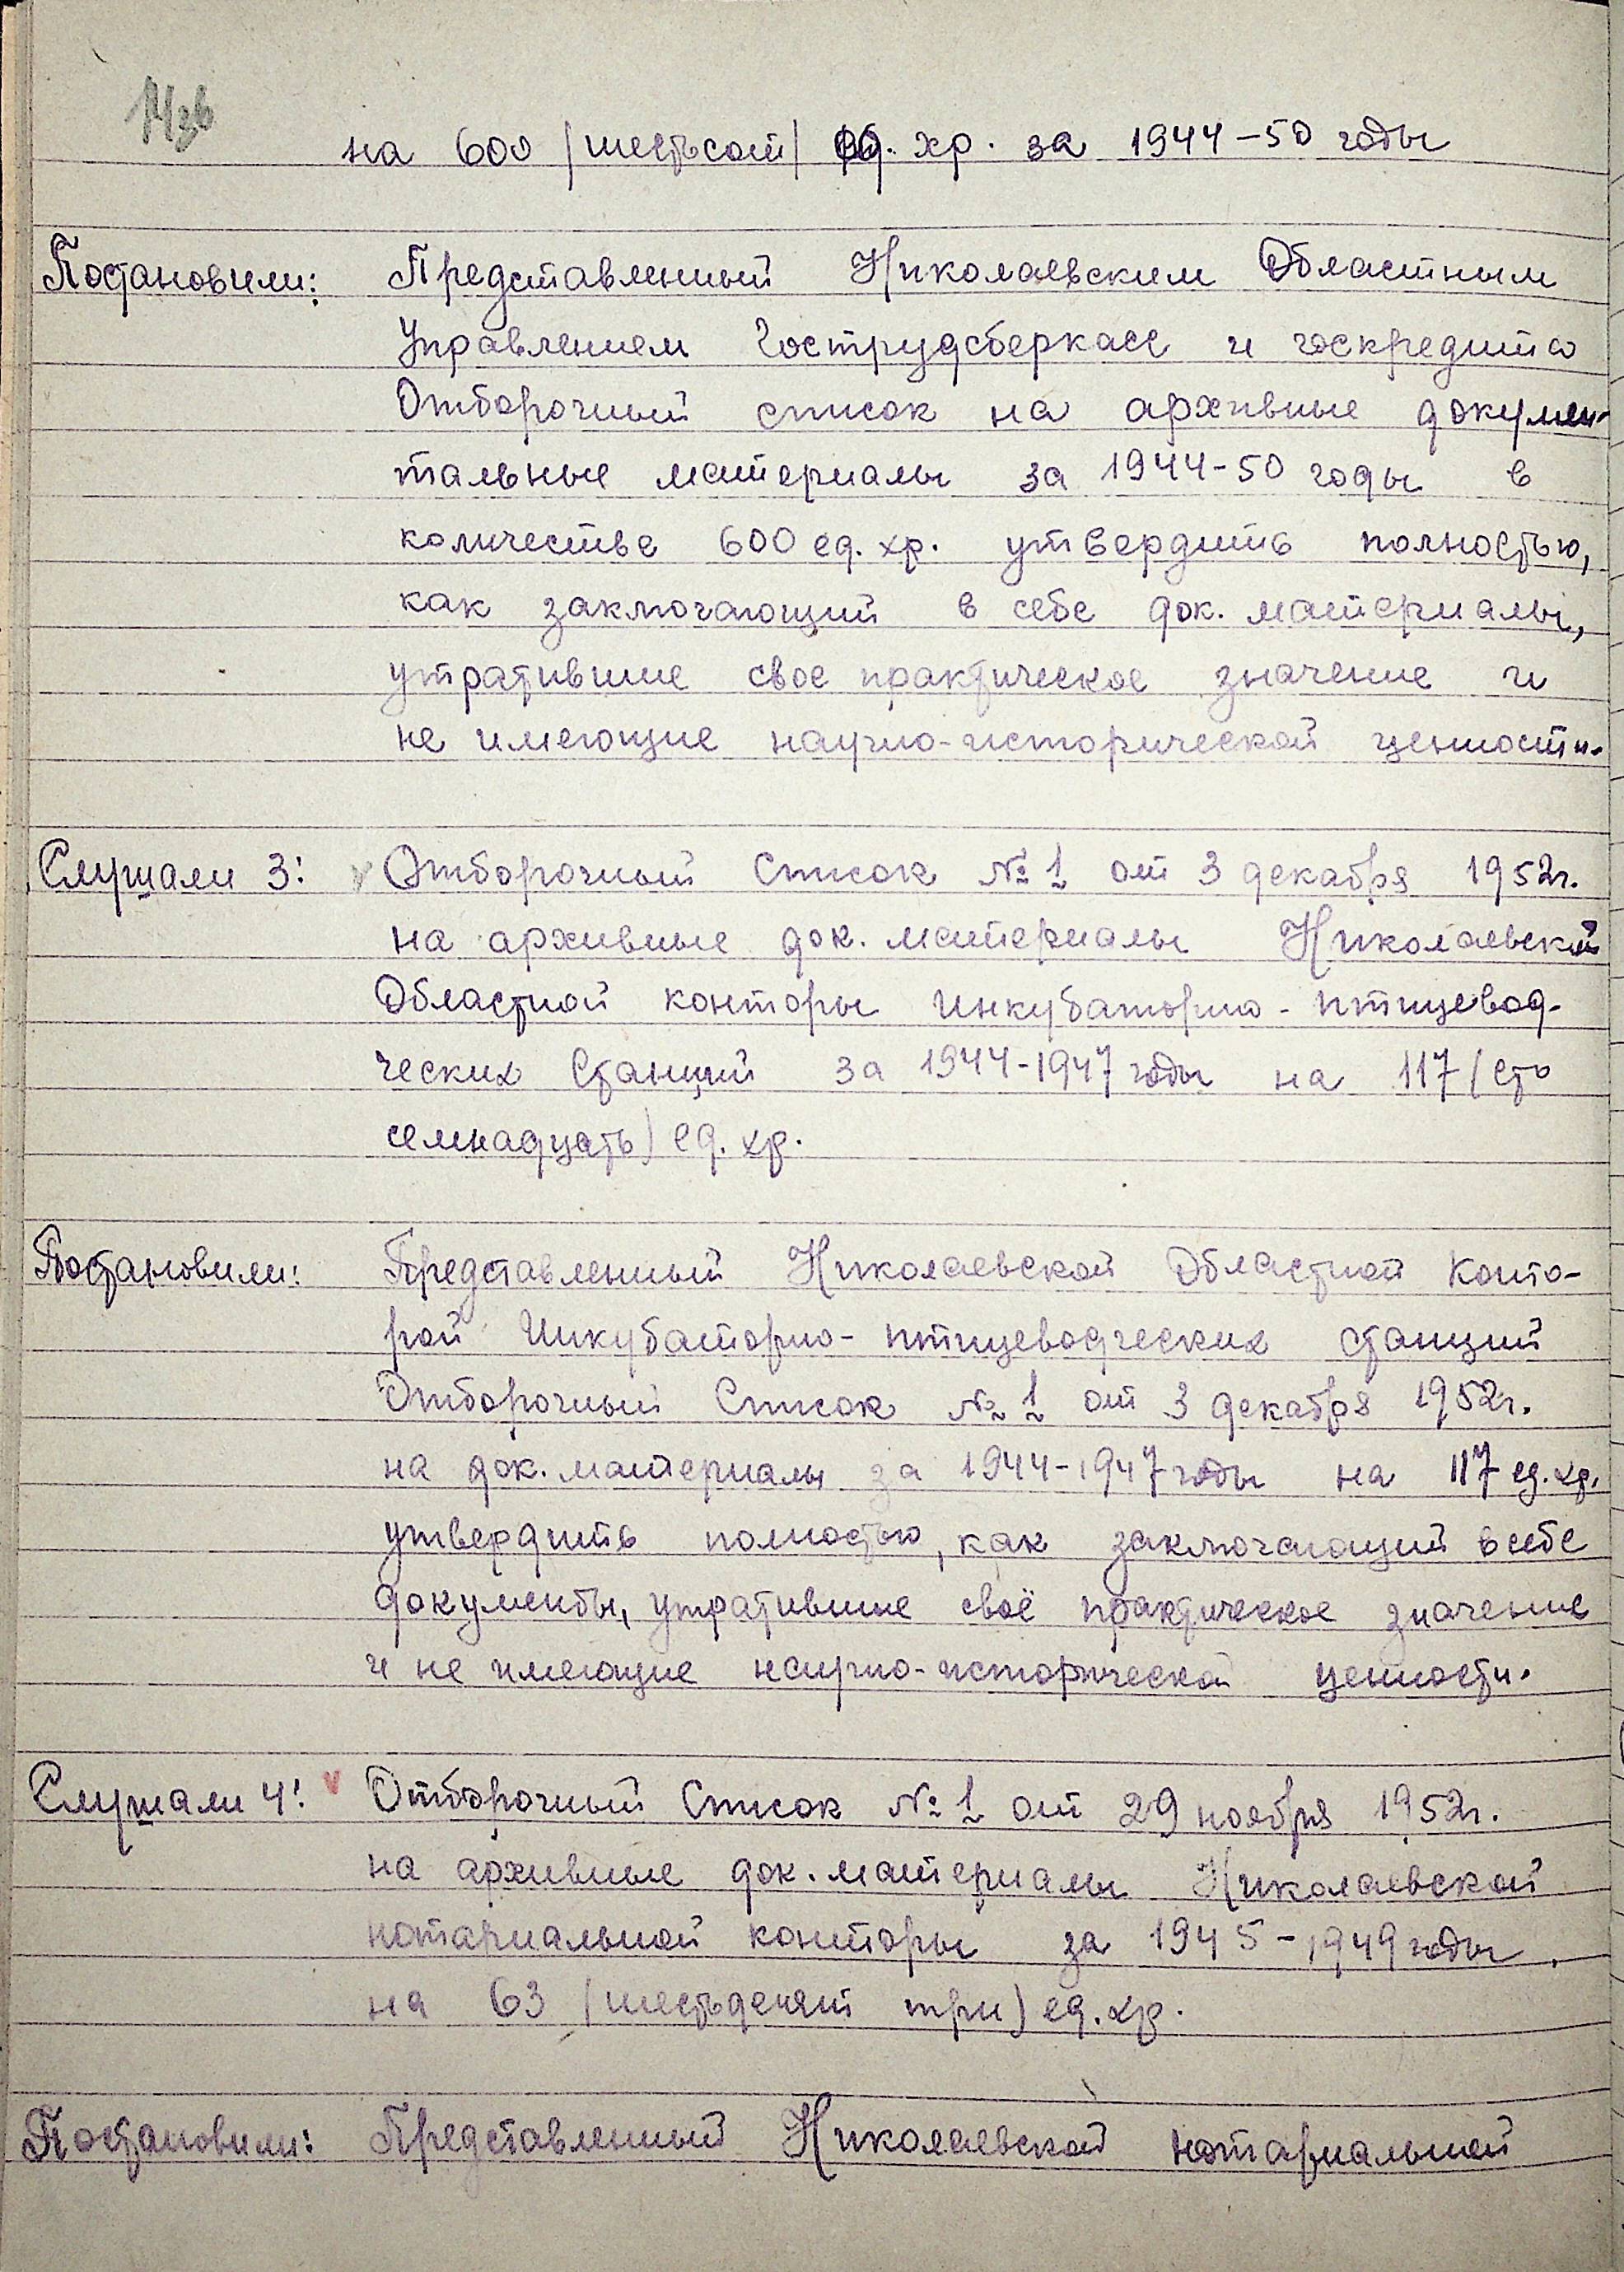 на 600 /шестьсот/ ед. хр. за 1944-50 годы
Постановили: Представленный Николаевским Областным
Управлением Гострудсберкасс и госкредита
Отборочный список на архивные докумен-
тальные материалы за 1944-50 годы в
количестве 600 ед. хр. утвердить полностью,
как заключающий в себе док. материалы,
утратившие свое практическое значение и
не имеющие научно-исторической ценности.
Слушали 3: Отборочный Список № 1 от 3 декабря 1952г.
на архивные док. материалы Николаевской
Областной конторы Инкубаторно-птицевод-
ческих Станций за 1944-1947 годы на 117 (сто
семнадцать) ед. хр.
Постановили: Представленный Николаевской Областной Конто-
рой Инкубаторно-птицеводческих станций
Отборочный Список № 1 от 3 декабря 1952г.
на док. материалы за 1944-1947 годы на 117 ед. хр.
утвердить полностью, как заключающий в себе
документы, утратившие своё практическое значение
и не имеющие научно-исторической ценности.
Слушали 4: Отборочный Список № 1 от 29 ноября 1952г.
на архивные док. материалы Николаевской
нотариальной конторы за 1945-1949 годы
на 63 (шестьдесят три) ед. хр.
Постановили: Представленный Николаевской нотариальной